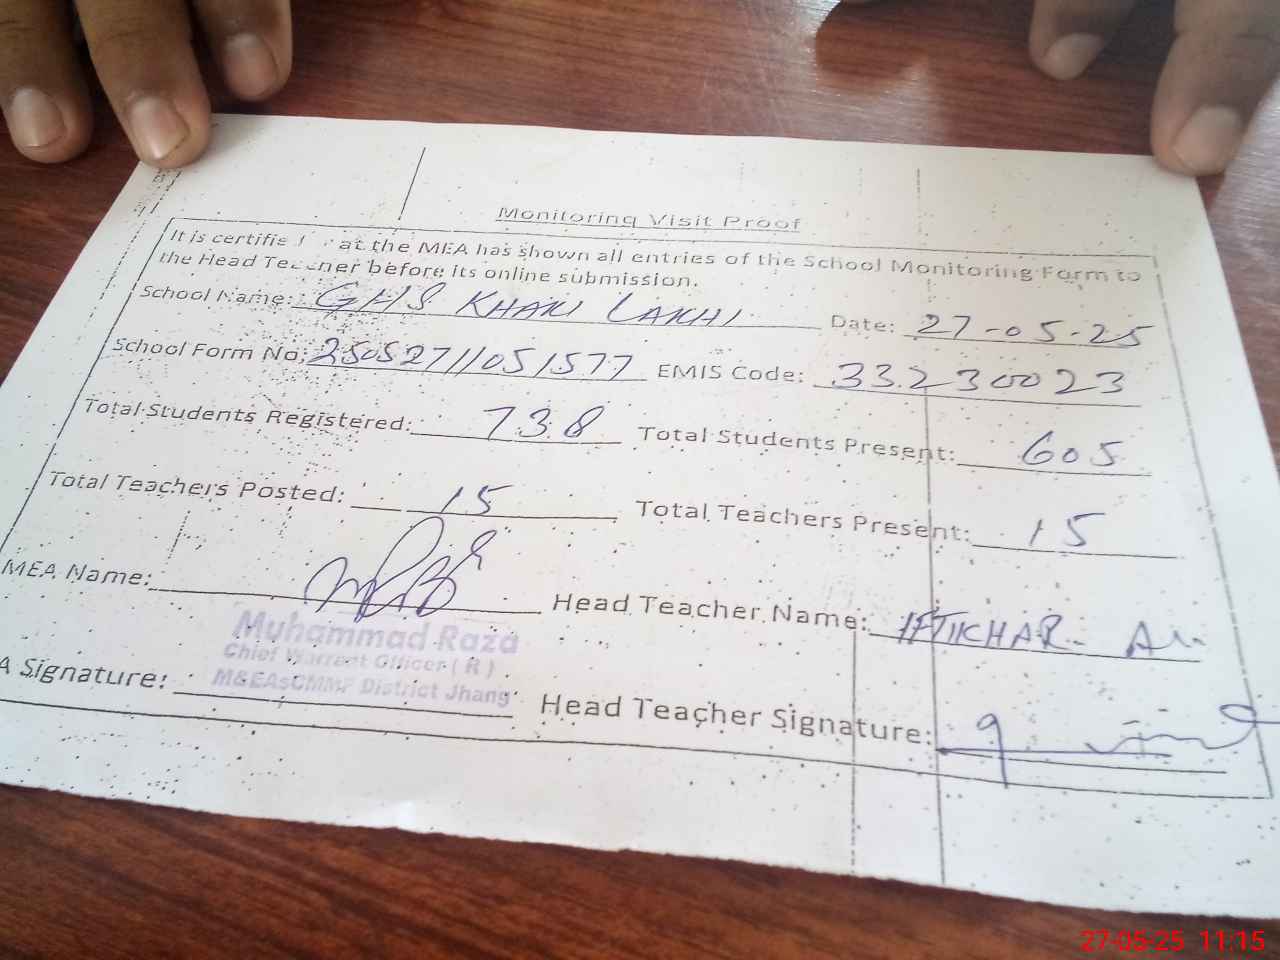 Monitoring Visit Proof
It is certifie at the MEA has shown all entries of the School Monitoring Form to
the Head Teacher before its online submission.
School Name: GHS KHAKI LAKHI Date: 27-05-25
School Form No: 25052711051577 EMIS Code: 33230023
Total Students Registered: 738 Total Students Present: 605
Total Teachers Posted: 15 Total Teachers Present: 15
MEA Name: Head Teacher Name: IFTIKHAR Ali
Muhammad Raza
Chief Warrant Officer ( R )
M&EAs CMMF District Jhang
A Signature: Head Teacher Signature:
27-05-25 11:15